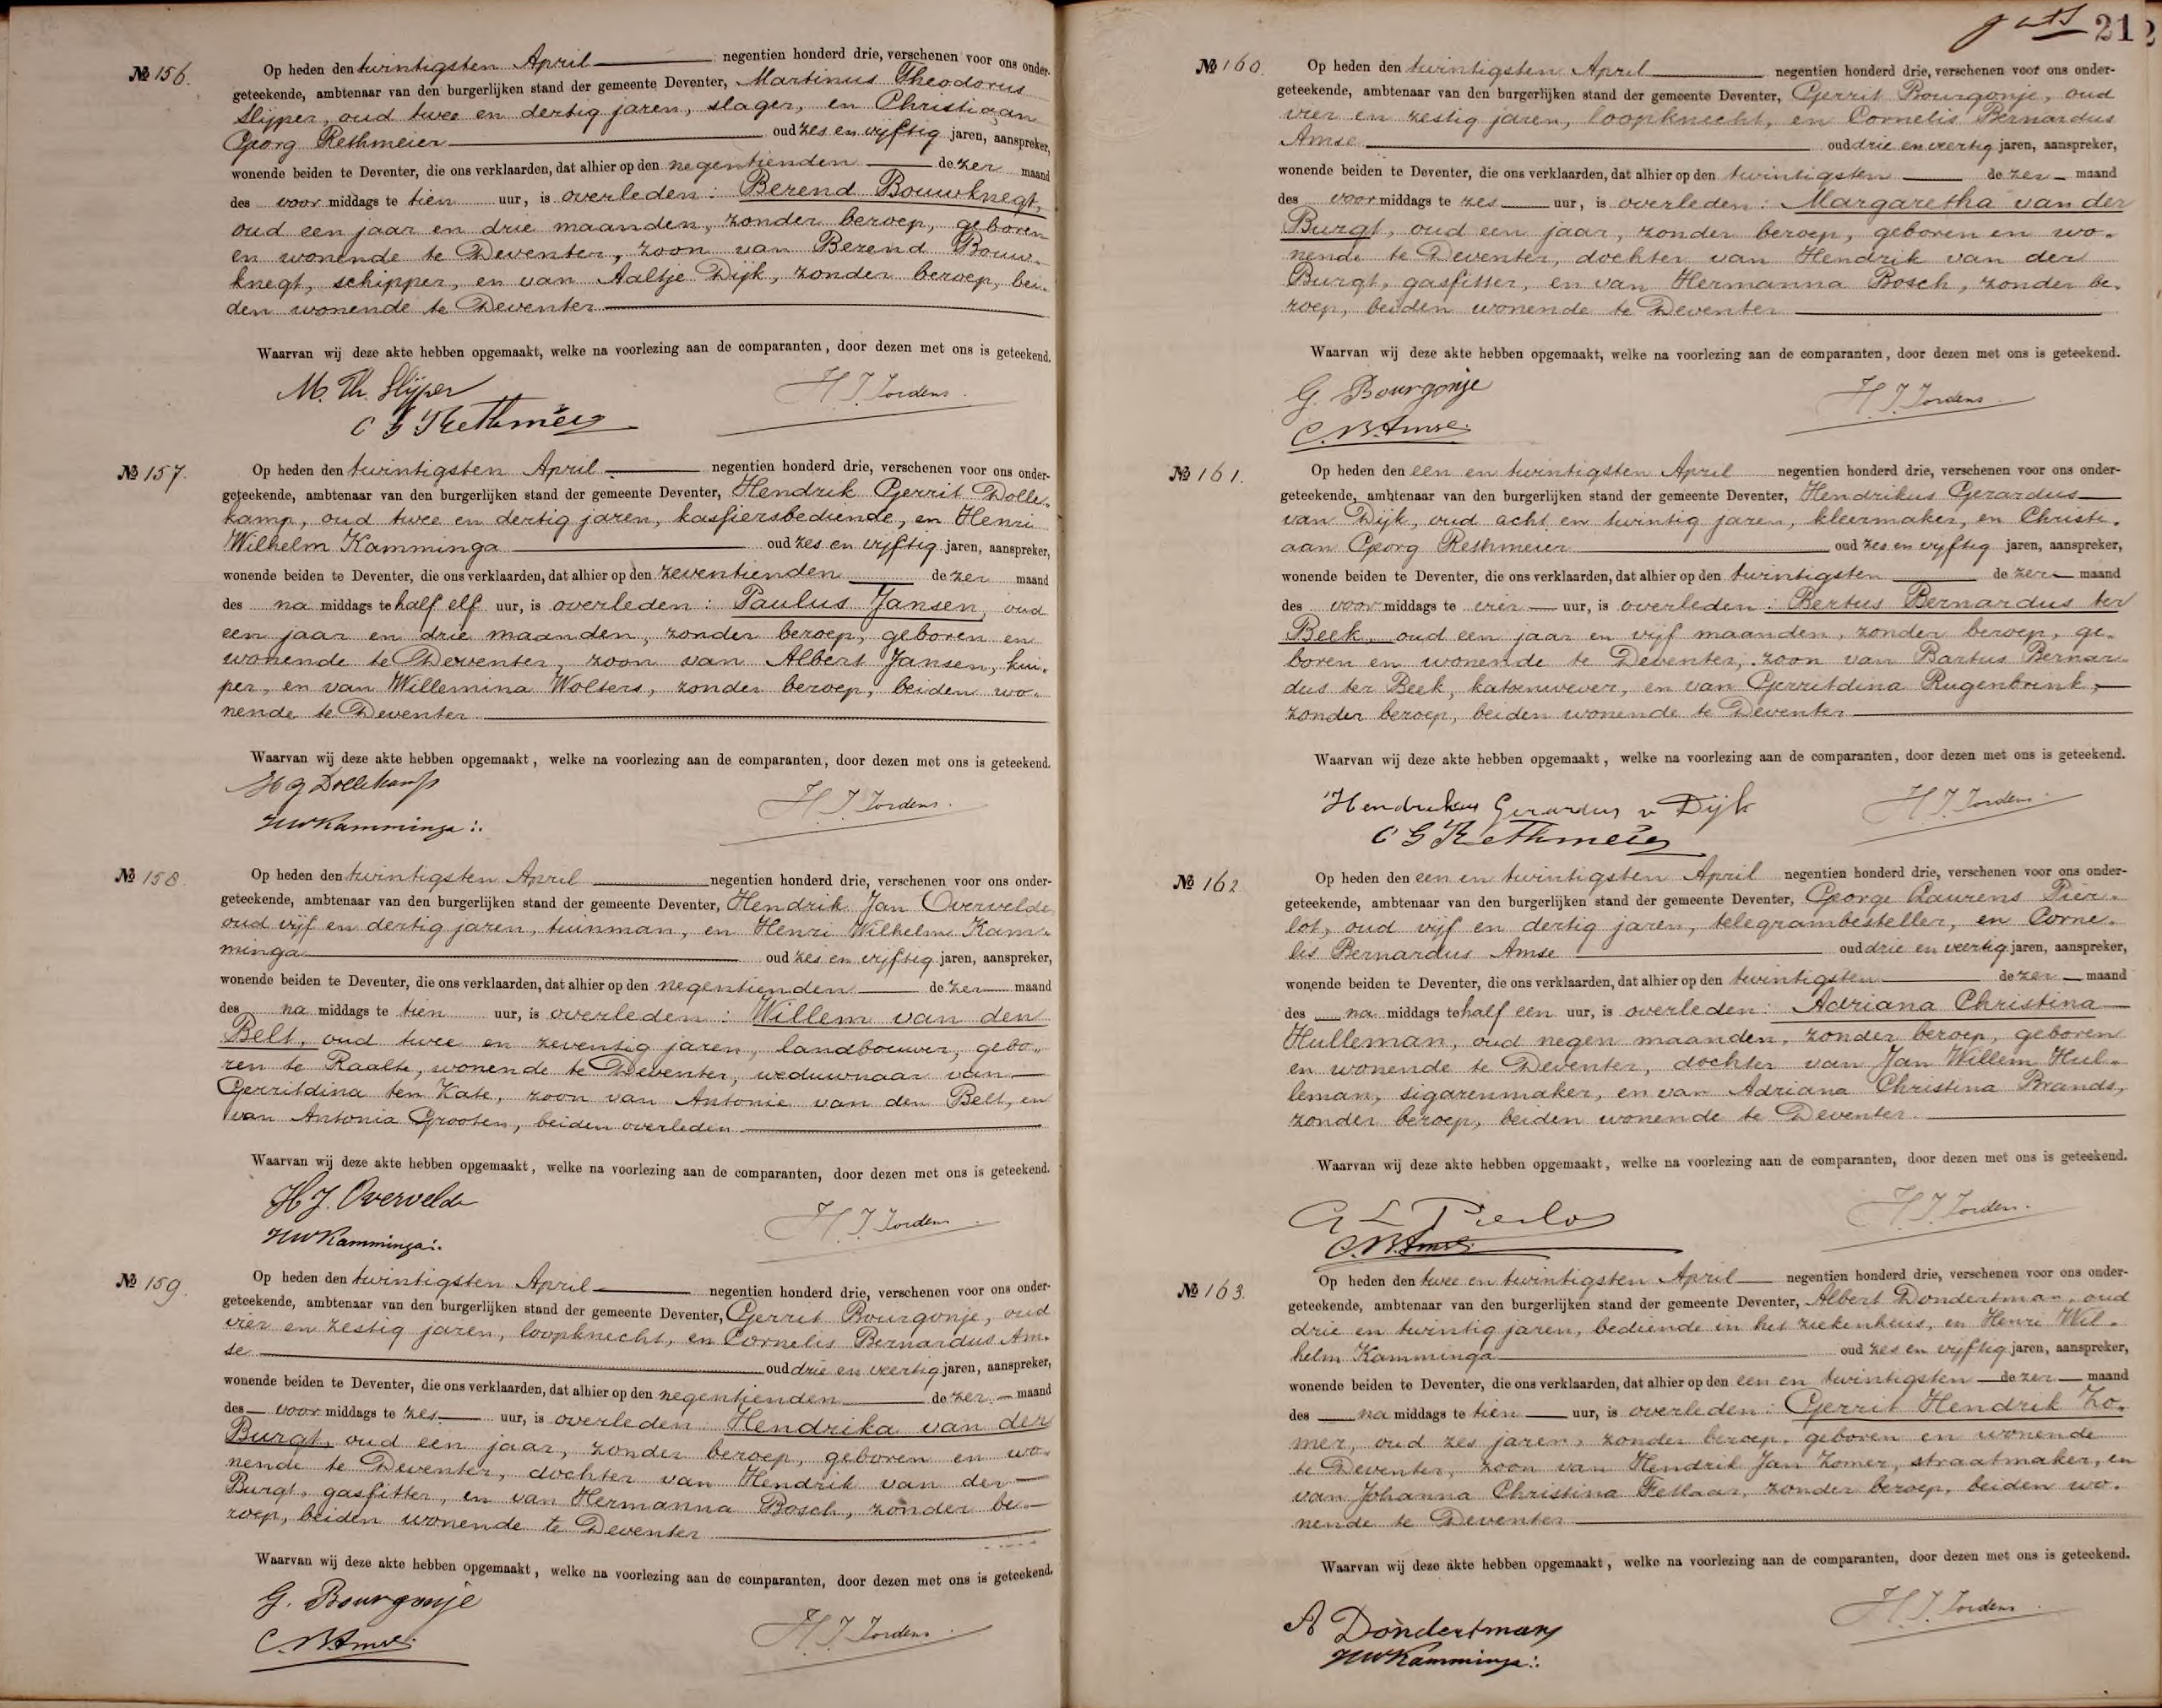 № 156.
Op heden den twintigsten April negentien honderd drie, verschenen voor ons onder-
geteekende, ambtenaar van den burgerlijken stand der gemeente Deventer, Martinus Theodorus
Slijper, oud twee en dertig jaren, slager, en Christiaan
Georg Rethmeier oud zes en vijftig jaren, aanspreker,
wonende beiden te Deventer, die ons verklaarden, dat alhier op den negentienden dezer maand
des voormiddags te tien uur, is overleden: Berend Bouwknegt,
oud een jaar en drie maanden, zonder beroep, geboren
en wonende te Deventer, zoon van Berend Bouw-
knegt, schipper, en van Aaltje Dijk, zonder beroep, bei-
den wonende te Deventer
Waarvan wij deze akte hebben opgemaakt, welke na voorlezing aan de comparanten, door dezen met ons is geteekend.
M. Th. Slijper H. J. Jordens.
C G Rethmeier
№ 157.
Op heden den twintigsten April negentien honderd drie, verschenen voor ons onder-
geteekende, ambtenaar van den burgerlijken stand der gemeente Deventer, Hendrik Gerrit Dolle-
kamp, oud twee en dertig jaren, kassiersbediende, en Henri
Wilhelm Kamminga oud zes en vijftig jaren, aanspreker,
wonende beiden te Deventer, die ons verklaarden, dat alhier op den zeventienden dezer maand
des na middags te half elf uur, is overleden: Paulus Jansen, oud
een jaar en drie maanden, zonder beroep, geboren en
wonende te Deventer, zoon van Albert Jansen, kui-
per, en van Willemina Wolters, zonder beroep, beiden wo-
nende te Deventer
Waarvan wij deze akte hebben opgemaakt, welke na voorlezing aan de comparanten, door dezen met ons is geteekend.
H G Dollekamp H. J. Jordens.
HW Kamminga :.
№ 158.
Op heden den twintigsten April negentien honderd drie, verschenen voor ons onder-
geteekende, ambtenaar van den burgerlijken stand der gemeente Deventer, Hendrik Jan Overvelde
oud vijf en dertig jaren, tuinman, en Henri Wilhelm Kam-
minga oud zes en vijftig jaren, aanspreker,
wonende beiden te Deventer, die ons verklaarden, dat alhier op den negentienden dezer maand
des na middags te tien uur, is overleden: Willem van den
Belt, oud twee en zeventig jaren, landbouwer, gebo-
ren te Raalte, wonende te Deventer, weduwnaar van
Gerritdina ten Kate, zoon van Antonie van den Belt, en
van Antonia Grooten, beiden overleden
Waarvan wij deze akte hebben opgemaakt, welke na voorlezing aan de comparanten, door dezen met ons is geteekend.
H J. Overvelde H. J. Jordens
HW Kamminga :.
№ 159.
Op heden den twintigsten April negentien honderd drie, verschenen voor ons onder-
geteekende, ambtenaar van den burgerlijken stand der gemeente Deventer, Gerrit Bourgonje, oud
vier en zestig jaren, loopknecht, en Cornelis Bernardus Am-
se oud drie en veertig jaren, aanspreker,
wonende beiden te Deventer, die ons verklaarden, dat alhier op den negentienden dezer maand
des voor middags te zes uur, is overleden: Hendrika van der
Burgt, oud een jaar, zonder beroep, geboren en wo-
nende te Deventer, dochter van Hendrik van der
Burgt, gasfitter, en van Hermanna Bosch, zonder be-
roep, beiden wonende te Deventer
Waarvan wij deze akte hebben opgemaakt, welke na voorlezing aan de comparanten, door dezen met ons is geteekend.
G. Bourgonje H. J. Jordens.
C. B. Amse.
212
№ 160.
Op heden den twintigsten April negentien honderd drie, verschenen voor ons onder-
geteekende, ambtenaar van den burgerlijken stand der gemeente Deventer, Gerrit Bourgonje, oud
vier en zestig jaren, loopknecht, en Cornelis Bernardus
Amse oud drie en veertig jaren, aanspreker,
wonende beiden te Deventer, die ons verklaarden, dat alhier op den twintigsten dezer maand
des voor middags te zes uur, is overleden: Margaretha van der
Burgt, oud een jaar, zonder beroep, geboren en wo-
nende te Deventer, dochter van Hendrik van der
Burgt, gasfitter, en van Hermanna Bosch, zonder be-
roep, beiden wonende te Deventer
Waarvan wij deze akte hebben opgemaakt, welke na voorlezing aan de comparanten, door dezen met ons is geteekend.
G. Bourgonje H. J. Jordens.
C. B. Amse.
№ 161.
Op heden den een en twintigsten April negentien honderd drie, verschenen voor ons onder-
geteekende, ambtenaar van den burgerlijken stand der gemeente Deventer, Hendrikus Gerardus
van Dijk, oud acht en twintig jaren, kleermaker, en Christi-
aan Georg Rethmeier oud zes en vyftig jaren, aanspreker,
wonende beiden te Deventer, die ons verklaarden, dat alhier op den twintigsten dezer maand
des voor middags te vier uur, is overleden: Bertus Bernardus ter
Beek, oud een jaar en vijf maanden, zonder beroep, ge-
boren en wonende te Deventer, zoon van Bartus Bernar-
dus ter Beek, katoenwever, en van Gerritdina Rugenbrink,
zonder beroep, beiden wonende te Deventer
Waarvan wij deze akte hebben opgemaakt, welke na voorlezing aan de comparanten, door dezen met ons is geteekend.
Hendrikus Gerardus v Dijk H. J. Jordens.
C G Rethmeier
№ 162
Op heden den een en twintigsten April negentien honderd drie, verschenen voor ons onder-
geteekende, ambtenaar van den burgerlijken stand der gemeente Deventer, George Laurens Pier-
lot, oud vijf en dertig jaren, telegrambesteller, en Corne-
lis Bernardus Amse oud drie en veertig jaren, aanspreker,
wonende beiden te Deventer, die ons verklaarden, dat alhier op den twintigsten dezer maand
des na middags te half een uur, is overleden: Adriana Christina
Hulleman, oud negen maanden, zonder beroep, geboren
en wonende te Deventer, dochter van Jan Willem Hul-
leman, sigarenmaker, en van Adriana Christina Brands,
zonder beroep, beiden wonende te Deventer.
Waarvan wij deze akte hebben opgemaakt, welke na voorlezing aan de comparanten, door dezen met ons is geteekend.
G L Pierlot H. J. Jordens.
C. B. Amse.
№ 163.
Op heden den twee en twintigsten April negentien honderd drie, verschenen voor ons onder-
geteekende, ambtenaar van den burgerlijken stand der gemeente Deventer, Albert Dondertman, oud
drie en twintig jaren, bediende in het ziekenhuis, en Henri Wil-
helm Kamminga oud zes en vijftig jaren, aanspreker,
wonende beiden te Deventer, die ons verklaarden, dat alhier op den een en twintigsten dezer maand
des na middags te tien uur, is overleden: Gerrit Hendrik Zo-
mer, oud zes jaren, zonder beroep, geboren en wonende
te Deventer, zoon van Hendrik Jan Zomer, straatmaker, en
van Johanna Christina Fetlaar, zonder beroep, beiden wo-
nende te Deventer
Waarvan wij deze akte hebben opgemaakt, welke na voorlezing aan de comparanten, door dezen met ons is geteekend.
A Dondertman H. J. Jordens
HW Kamminga :.